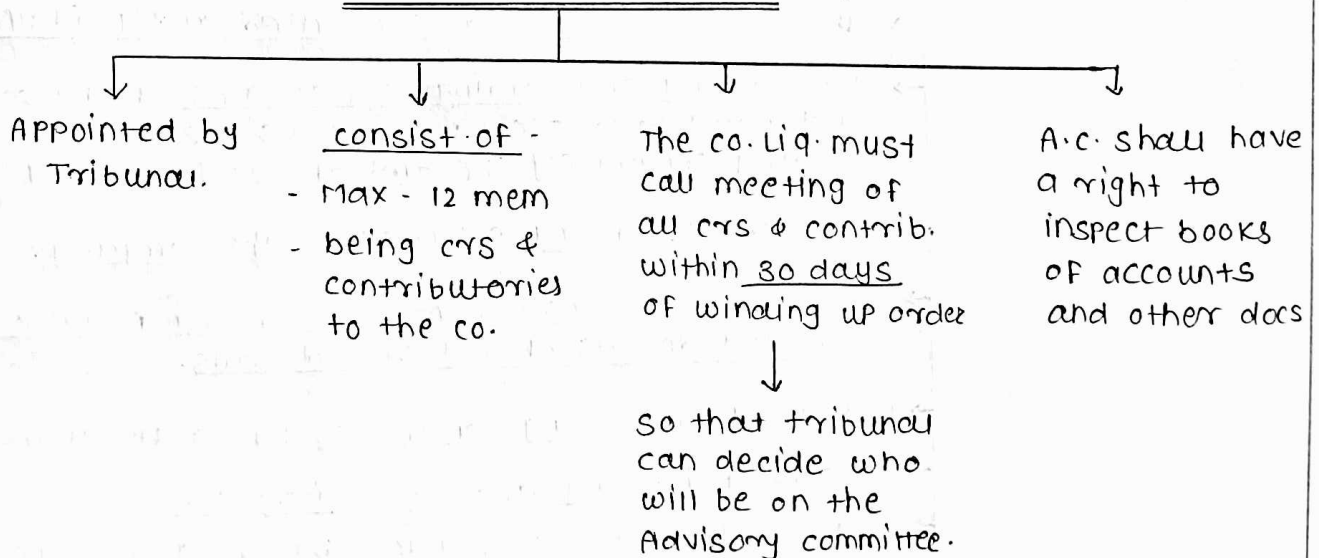 Appointed by
Tribunal.
consist of -
- Max - 12 mem
- being crs &
contributories
to the co.
The co. Liq. must
call meeting of
all crs & contrib.
within 30 days
of winding up order
So that tribunal
can decide who
will be on the
Advisory committee.
A.c. shall have
a right to
inspect books
of accounts
and other docs